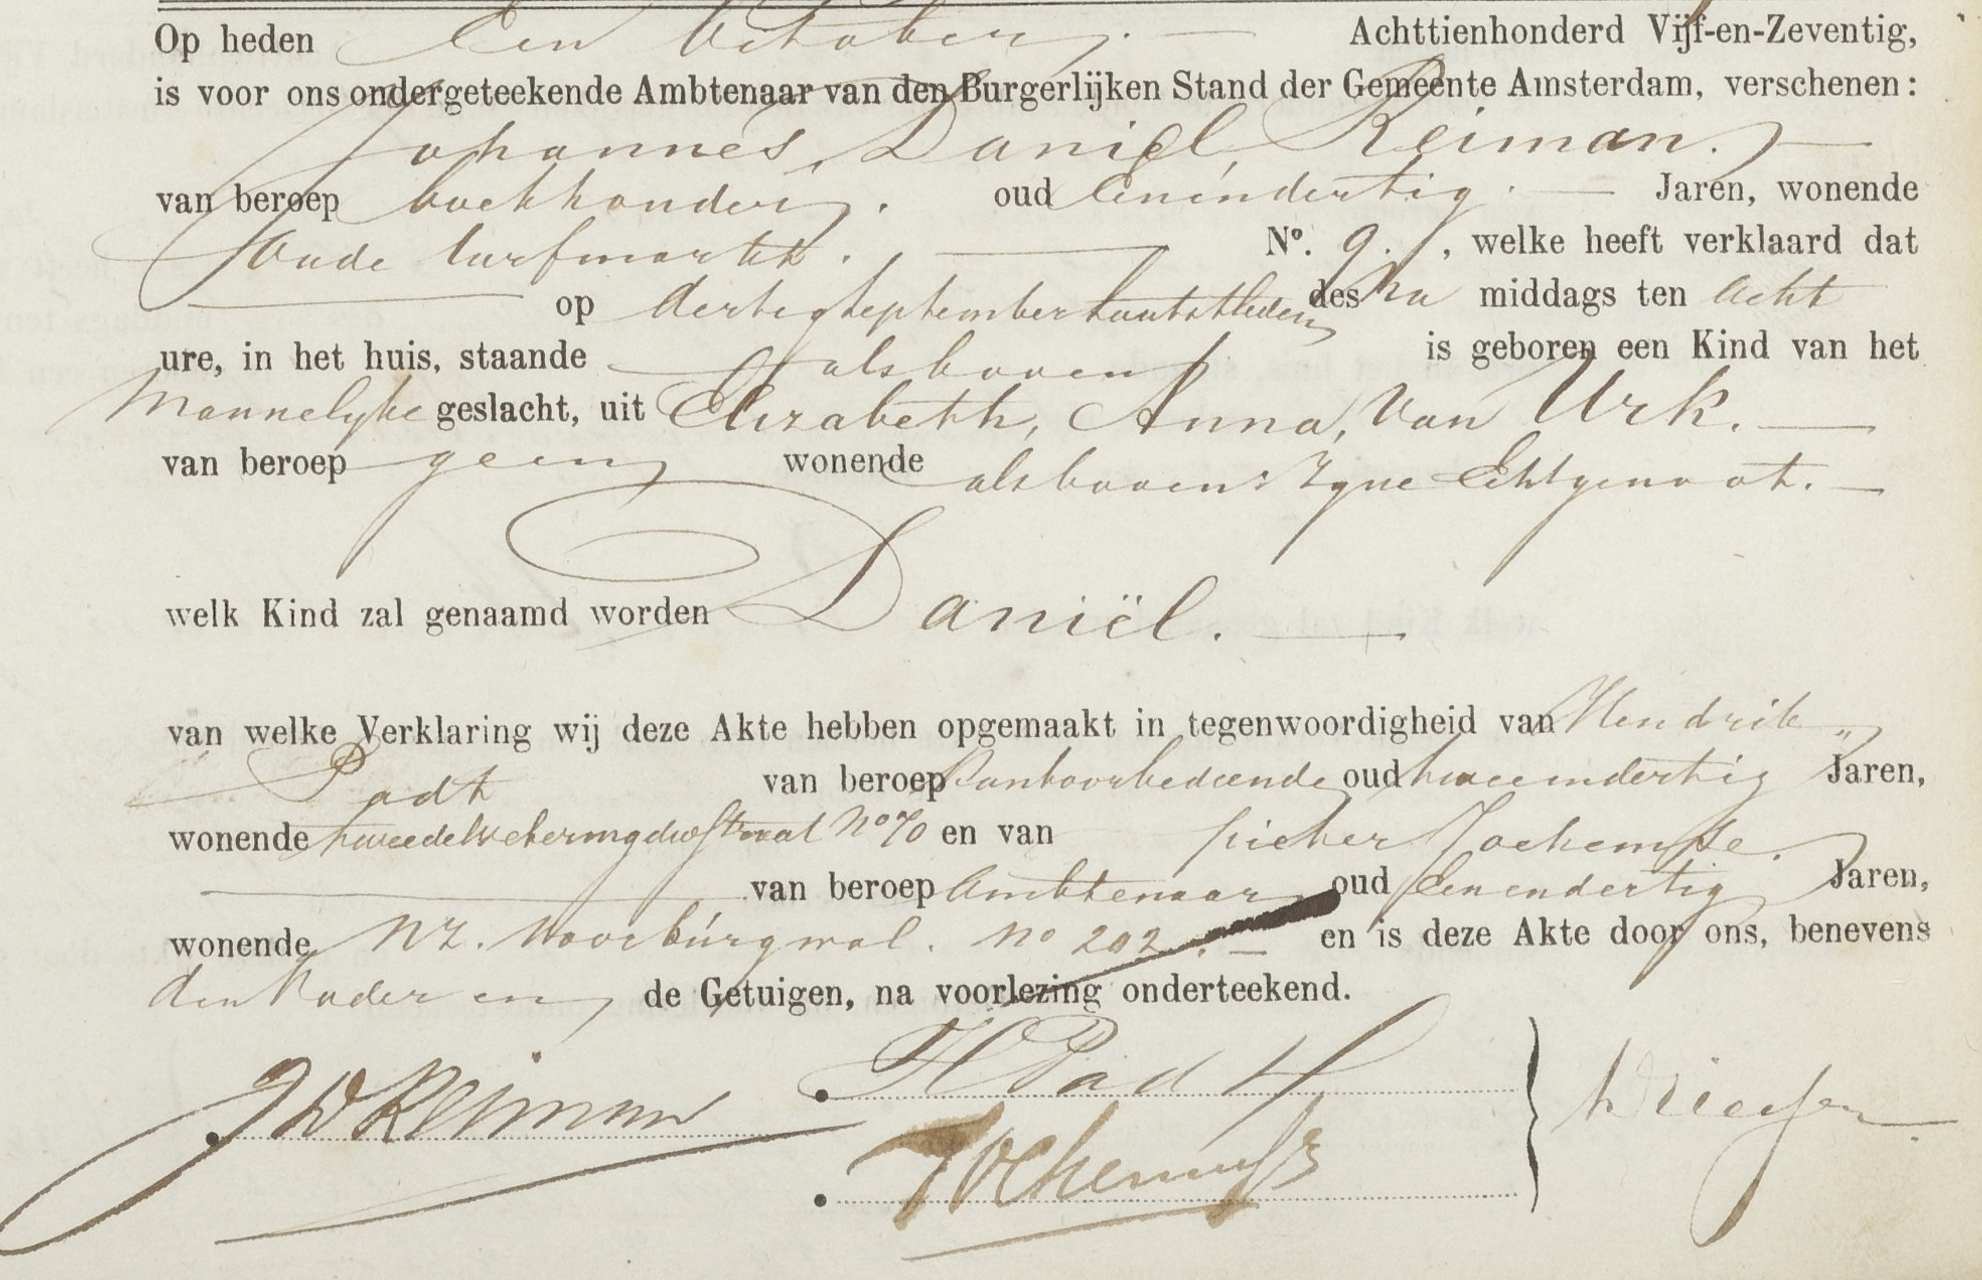 Op heden Een October. Achttienhonderd Vijf-en-Zeventig,
is voor ons ondergeteekende Ambtenaar van den Burgerlijken Stand der Gemeente Amsterdam, verschenen:
Johannes, Daniel, Reiman.
van beroep boekhouder. oud Eenendertig. Jaren, wonende
Oude turfmarkt. No. 9. , welke heeft verklaard dat
op dertig september laatstleden des na middags ten acht
ure, in het huis, staande alsboven is geboren een Kind van het
Mannelyke geslacht, uit Elizabeth, Anna, van Urk.
van beroep geen wonende alsboven: zyne Echtgenoot.
welk Kind zal genaamd worden Daniël.
van welke Verklaring wij deze Akte hebben opgemaakt in tegenwoordigheid van Hendrik
Padt van beroep Kantoorbediende oud tweeendertig Jaren,
wonende tweede Weteringdwstraat No 70 en van pieter Jochemse.
van beroep Ambtenaar oud Eenendertig Jaren,
wonende NZ. Voorburgwal. No 202. en is deze Akte door ons, benevens
den Vader en de Getuigen, na voorlezing onderteekend.
JD Reiman
H Padt
Jochemse